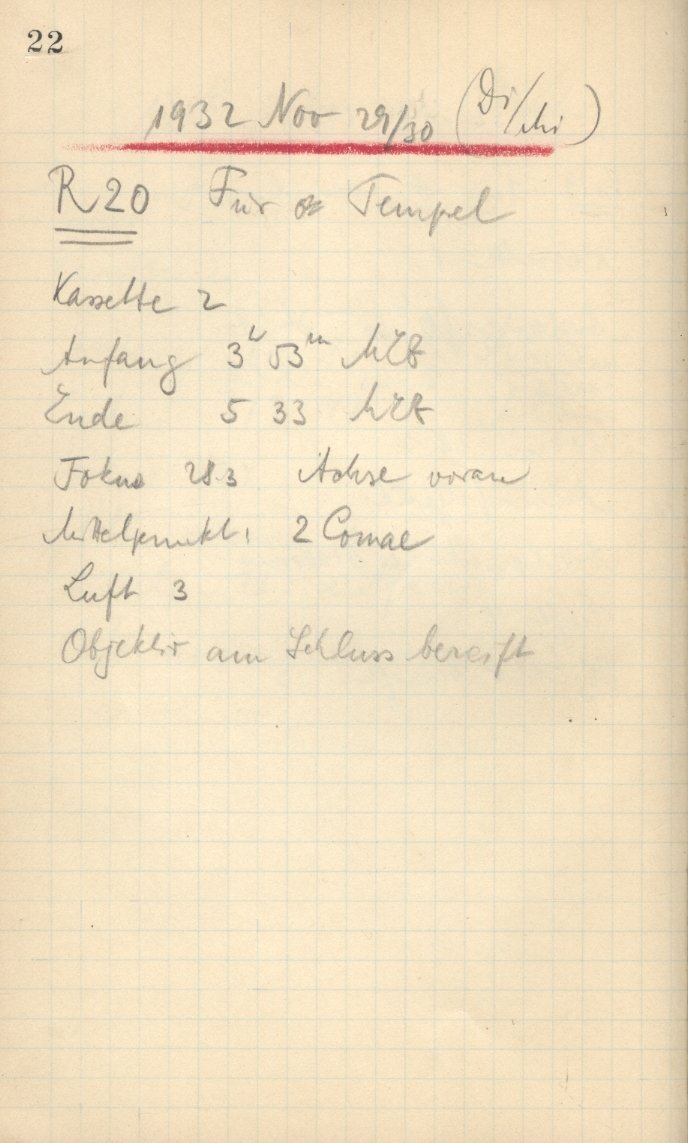 22
1932 Nov 29/30 (Di/Mi)
R 20 Für Tempel
Kassette 2
Anfang 3h 53m MEZ
Ende 5 33 MEZ
Fokus 28.3 Achse voran
Mittelpunkt: 2 Comae
Luft 3
Objektiv am Schluss bereift